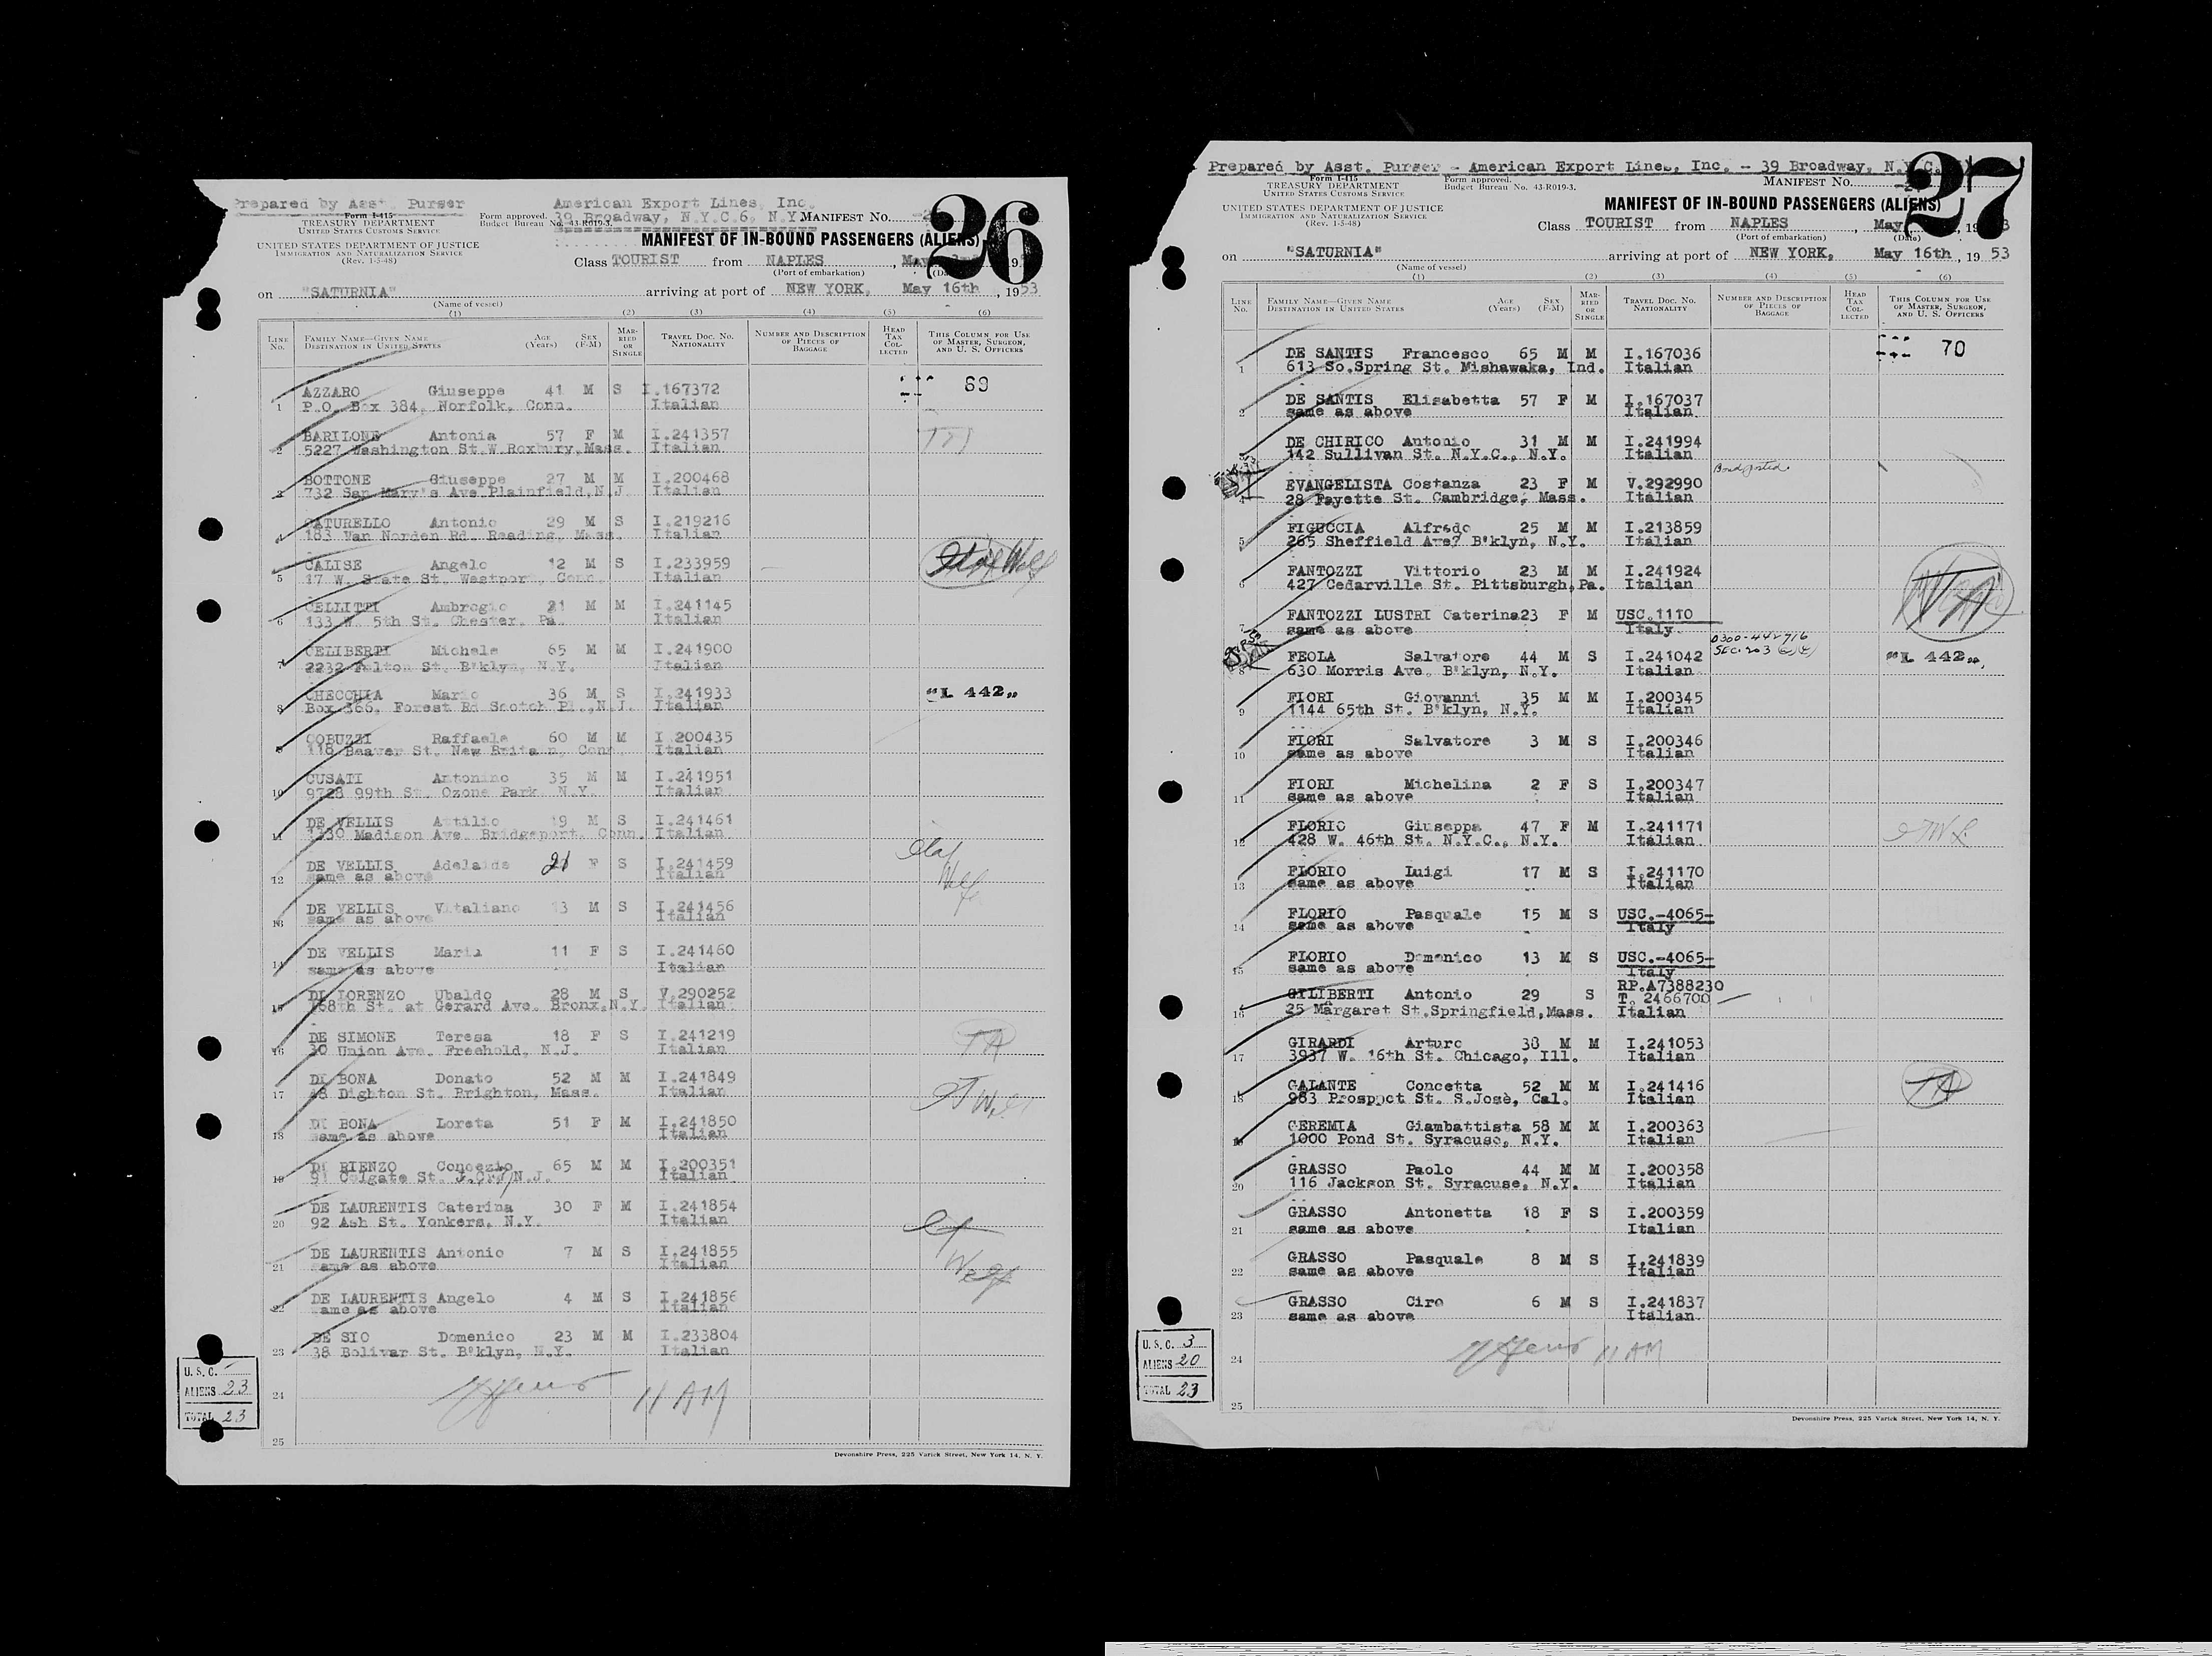 26
Prepared by Asst. Purser American Export Lines, Inc.
Form I-415 Form approved. 39 Broadway, N.Y.C.6, N.Y. MANIFEST No.
TREASURY DEPARTMENT Budget Bureau No. 43-R019-3.
UNITED STATES CUSTOMS SERVICE
UNITED STATES DEPARTMENT OF JUSTICE MANIFEST OF IN-BOUND PASSENGERS (ALIENS)
IMMIGRATION AND NATURALIZATION SERVICE
(Rev. 1-5-48) Class TOURIST from NAPLES, May
(Port of embarkation)
on "SATURNIA" arriving at port of NEW YORK, May 16th, 1953
(Name of vessel)
(1) (2) (3) (4) (5) (6)
LINE No. FAMILY NAME—GIVEN NAME DESTINATION IN UNITED STATES AGE (Years) SEX (F-M) MARRIED OR SINGLE TRAVEL DOC. NO. NATIONALITY NUMBER AND DESCRIPTION OF PIECES OF BAGGAGE HEAD TAX COLLECTED THIS COLUMN FOR USE OF MASTER, SURGEON, AND U. S. OFFICERS
69
1 AZZARO Giuseppe 41 M S I.167372
P.O. Box 384, Norfolk, Conn. Italian
2 BARILONE Antonia 57 F M I.241357
5227 Washington St.W.Roxbury,Mass. Italian
3 BOTTONE Giuseppe 27 M M I.200468
732 San Mary's Ave Plainfield,N.J. Italian
4 CATURELLO Antonio 29 M S I.219216
183 Van Norden Rd. Reading, Mass. Italian
5 CALISE Angelo 12 M S I.233959
17 W. State St. Westport, Conn. Italian
6 CELLITTI Ambrogio 21 M M I.241145
133 W. 5th St. Chester, Pa. Italian
7 CELIBERTI Michele 65 M M I.241900
2232 Fulton St. B'klyn, N.Y. Italian
8 CHECCHIA Mario 36 M S I.241933 "L 442"
Box 366, Forest Rd Scotch Pl.,N.J. Italian
9 COBUZZI Raffaele 60 M M I.200435
118 Beaver St. New Britain, Conn. Italian
10 CUSATI Antonino 35 M M I.241951
9728 99th St. Ozone Park N.Y. Italian
11 DE VELLIS Attilio 19 M S I.241461
1330 Madison Ave. Bridgeport, Conn. Italian
12 DE VELLIS Adelaide 21 F S I.241459
same as above Italian
13 DE VELLIS Vitaliano 13 M S I.241456
same as above Italian
14 DE VELLIS Maria 11 F S I.241460
same as above Italian
15 DI LORENZO Ubaldo 28 M S V.290252
168th St. at Gerard Ave. Bronx,N.Y. Italian
16 DE SIMONE Teresa 18 F S I.241219 TA
30 Union Ave. Freehold, N.J. Italian
17 DI BONA Donato 52 M M I.241849
48 Dighton St. Brighton, Mass. Italian
18 DI BONA Loreta 51 F M I.241850
same as above Italian
19 DI RIENZO Concezio 65 M M I.200351
91 Colgate St. J.City N.J. Italian
20 DE LAURENTIS Caterina 30 F M I.241854
92 Ash St. Yonkers, N.Y. Italian
21 DE LAURENTIS Antonio 7 M S I.241855
same as above Italian
22 DE LAURENTIS Angelo 4 M S I.241856
same as above Italian
23 DE SIO Domenico 23 M M I.233804
38 Bolivar St. B'klyn, N.Y. Italian
U. S. C. -
ALIENS 23
TOTAL 23
24 11 AM
25
Devonshire Press, 225 Varick Street, New York 14, N. Y.
27
Prepared by Asst. Purser - American Export Lines, Inc. - 39 Broadway, N.Y.C.
Form I-415 Form approved. MANIFEST No.
TREASURY DEPARTMENT Budget Bureau No. 43-R019-3.
UNITED STATES CUSTOMS SERVICE
UNITED STATES DEPARTMENT OF JUSTICE MANIFEST OF IN-BOUND PASSENGERS (ALIENS)
IMMIGRATION AND NATURALIZATION SERVICE
(Rev. 1-5-48) Class TOURIST from NAPLES, May , 1953
(Port of embarkation) (Date)
on "SATURNIA" arriving at port of NEW YORK, May 16th, 1953
(Name of vessel)
(1) (2) (3) (4) (5) (6)
LINE No. FAMILY NAME—GIVEN NAME DESTINATION IN UNITED STATES AGE (Years) SEX (F-M) MARRIED OR SINGLE TRAVEL DOC. NO. NATIONALITY NUMBER AND DESCRIPTION OF PIECES OF BAGGAGE HEAD TAX COLLECTED THIS COLUMN FOR USE OF MASTER, SURGEON, AND U. S. OFFICERS
70
1 DE SANTIS Francesco 65 M M I.167036
613 So.Spring St. Mishawaka, Ind. Italian
2 DE SANTIS Elisabetta 57 F M I.167037
same as above Italian
3 DE CHIRICO Antonio 31 M M I.241994
142 Sullivan St. N.Y.C., N.Y. Italian
Bond posted
4 EVANGELISTA Costanza 23 F M V.292990
28 Fayette St. Cambridge, Mass. Italian
5 FIGUCCIA Alfredo 25 M M I.213859
265 Sheffield Ave? B'klyn, N.Y. Italian
6 FANTOZZI Vittorio 23 M M I.241924
427 Cedarville St. Pittsburgh,Pa. Italian
7 FANTOZZI LUSTRI Caterina 23 F M USC.1110
same as above Italy
0300-442716
8 FEOLA Salvatore 44 M S I.241042 SEC. 203 "L 442"
630 Morris Ave. B'klyn, N.Y. Italian
9 FIORI Giovanni 35 M M I.200345
1144 65th St. B'klyn, N.Y. Italian
10 FIORI Salvatore 3 M S I.200346
same as above Italian
11 FIORI Michelina 2 F S I.200347
same as above Italian
12 FLORIO Giuseppa 47 F M I.241171
428 W. 46th St. N.Y.C., N.Y. Italian
13 FLORIO Luigi 17 M S I.241170
same as above Italian
14 FLORIO Pasquale 15 M S USC.-4065-
same as above Italy
15 FLORIO Domenico 13 M S USC.-4065-
same as above Italy
RP.A7388230
16 GILIBERTI Antonio 29 S T. 2466700
25 Margaret St.Springfield,Mass. Italian
17 GIRARDI Arturo 38 M M I.241053
3937 W. 16th St. Chicago, Ill. Italian
18 GALANTE Concetta 52 M M I.241416 TA
983 Prospect St. S.Josè, Cal. Italian
19 GEREMIA Giambattista 58 M M I.200363
1000 Pond St. Syracuse, N.Y. Italian
20 GRASSO Paolo 44 M M I.200358
116 Jackson St. Syracuse, N.Y. Italian
21 GRASSO Antonetta 18 F S I.200359
same as above Italian
22 GRASSO Pasquale 8 M S I.241839
same as above Italian
23 GRASSO Ciro 6 M S I.241837
same as above Italian
U. S. C. 3
ALIENS 20
TOTAL 23
24 11 AM
25
Devonshire Press, 225 Varick Street, New York 14, N. Y.